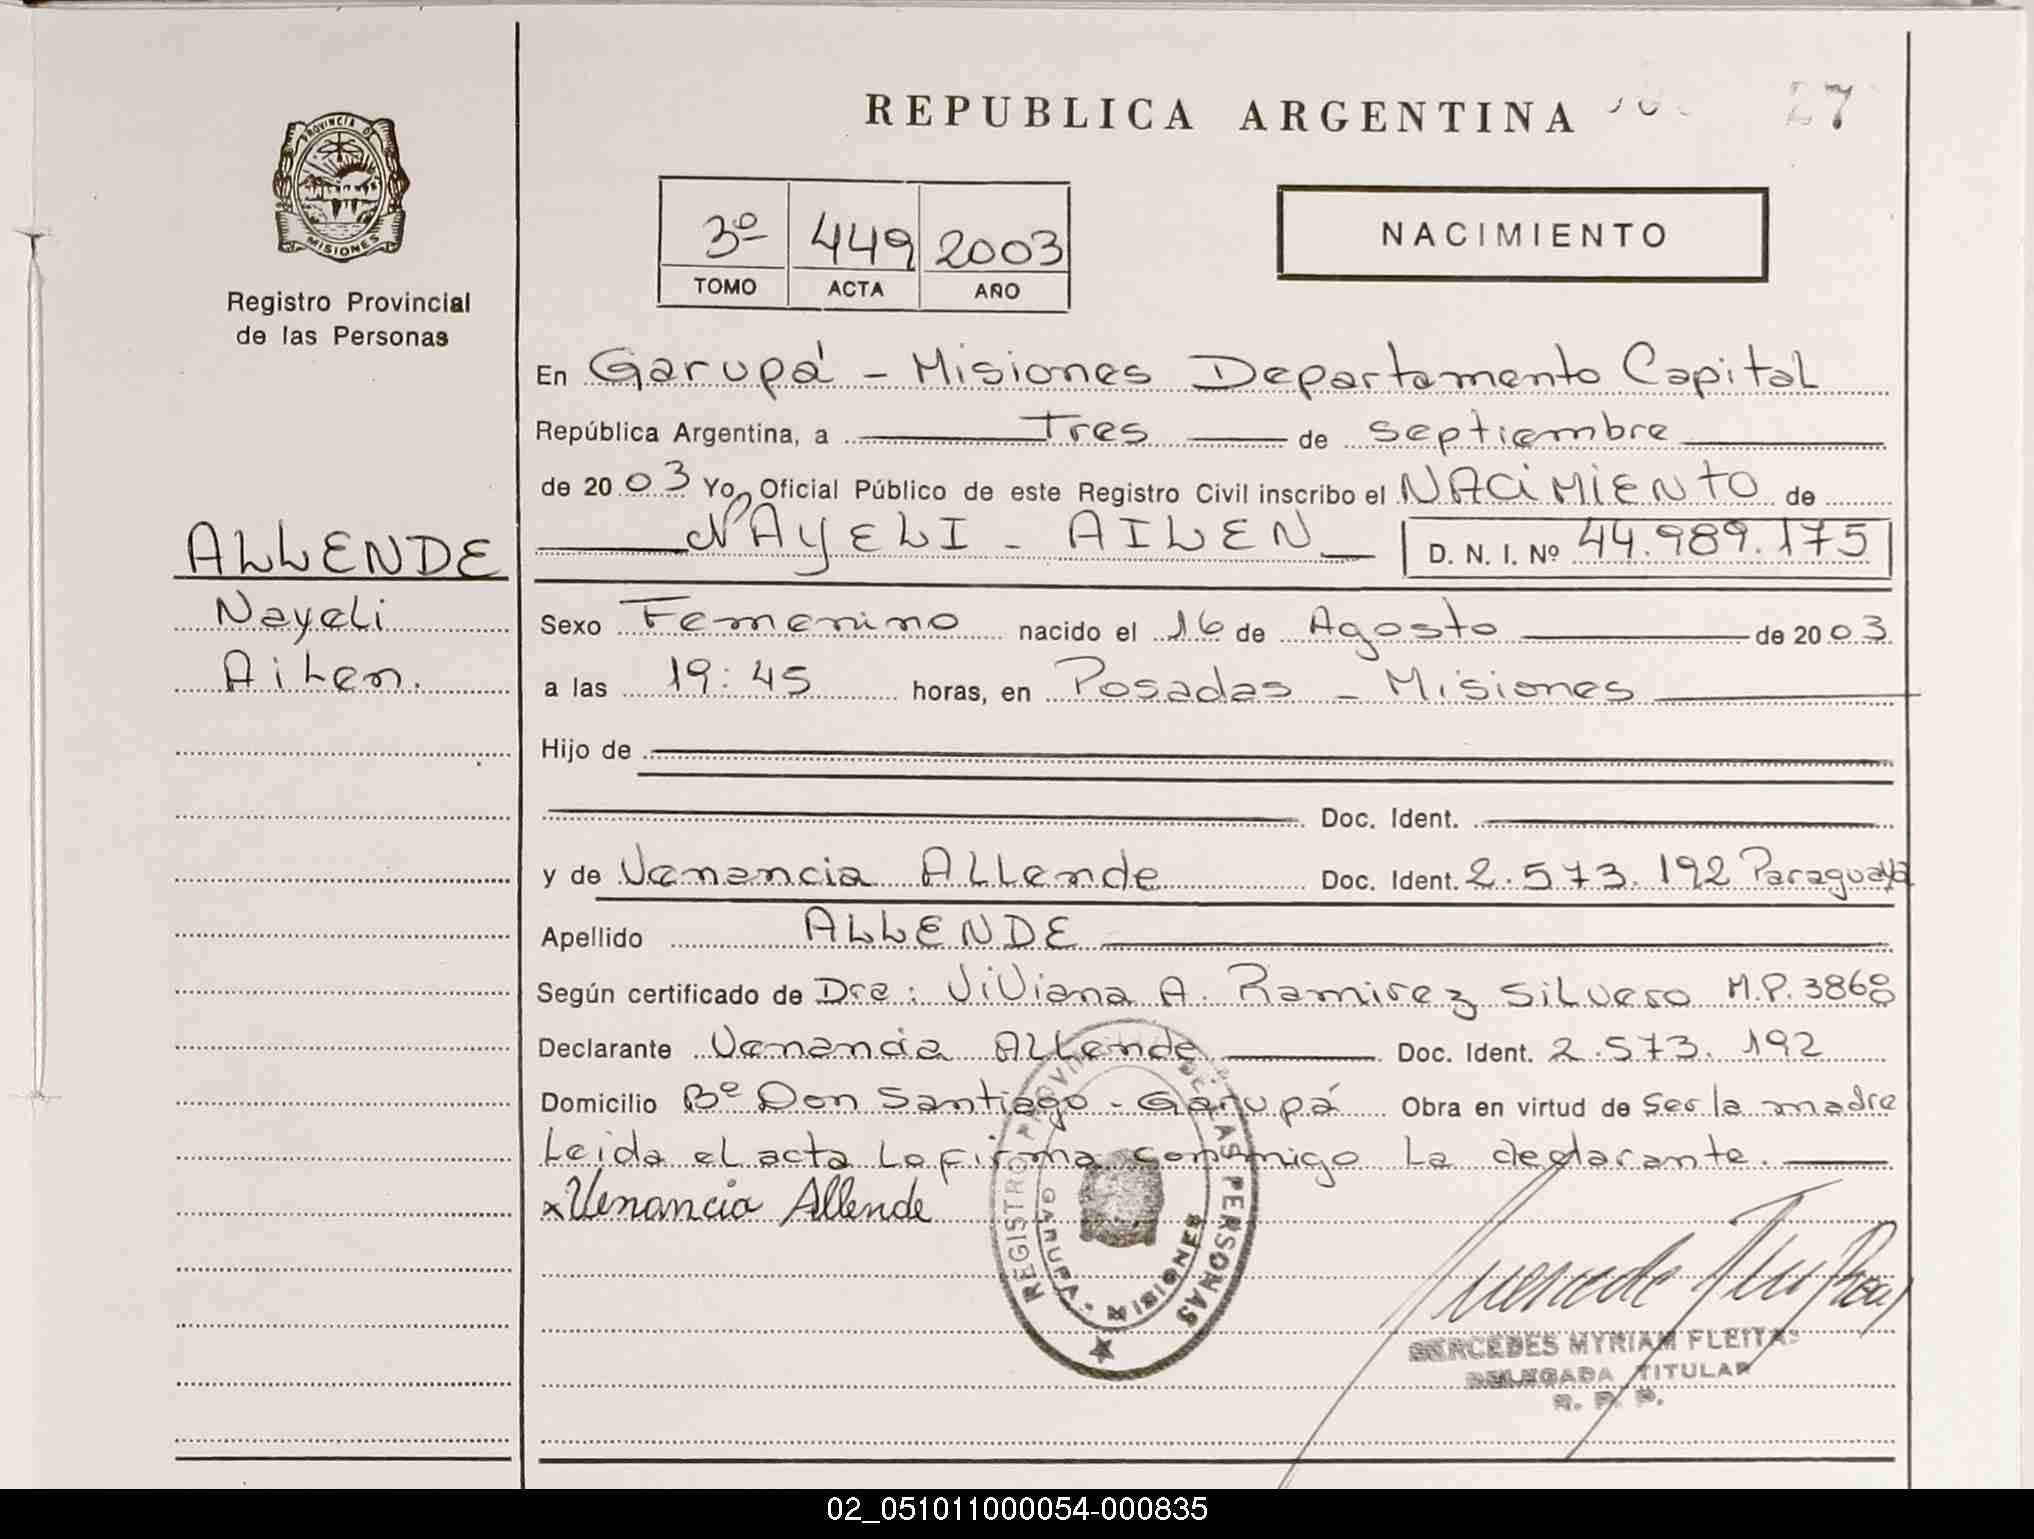 REPUBLICA ARGENTINA
27
PROVINCIA DE
MISIONES
Registro Provincial
de las Personas
3º 449 2003
TOMO ACTA AÑO
NACIMIENTO
En Garupá - Misiones Departamento Capital
República Argentina, a Tres de septiembre
de 2003 Yo, Oficial Público de este Registro Civil inscribo el NACIMIENTO de
NAYELI - AILEN D. N. I. Nº 44.989.175
ALLENDE
Nayeli
Ailen.
Sexo Femenino nacido el 16 de Agosto de 2003
a las 19:45 horas, en Posadas - Misiones
Hijo de
Doc. Ident.
y de Venancia Allende Doc. Ident. 2.573.192 Paraguaya
Apellido ALLENDE
Según certificado de Dra: Viviana A. Ramirez Silvero M.P. 3868
Declarante Venancia Allende Doc. Ident. 2.573.192
Domicilio Bº Don Santiago - Garupá Obra en virtud de ser la madre
Leida el acta la firma conmigo la declarante.
x Venancia Allende
REGISTRO PROVINCIAL DE LAS PERSONAS
GARUPA - MISIONES
MERCEDES MYRIAM FLEITAS
DELEGADA TITULAR
R. P. P.
02_051011000054-000835